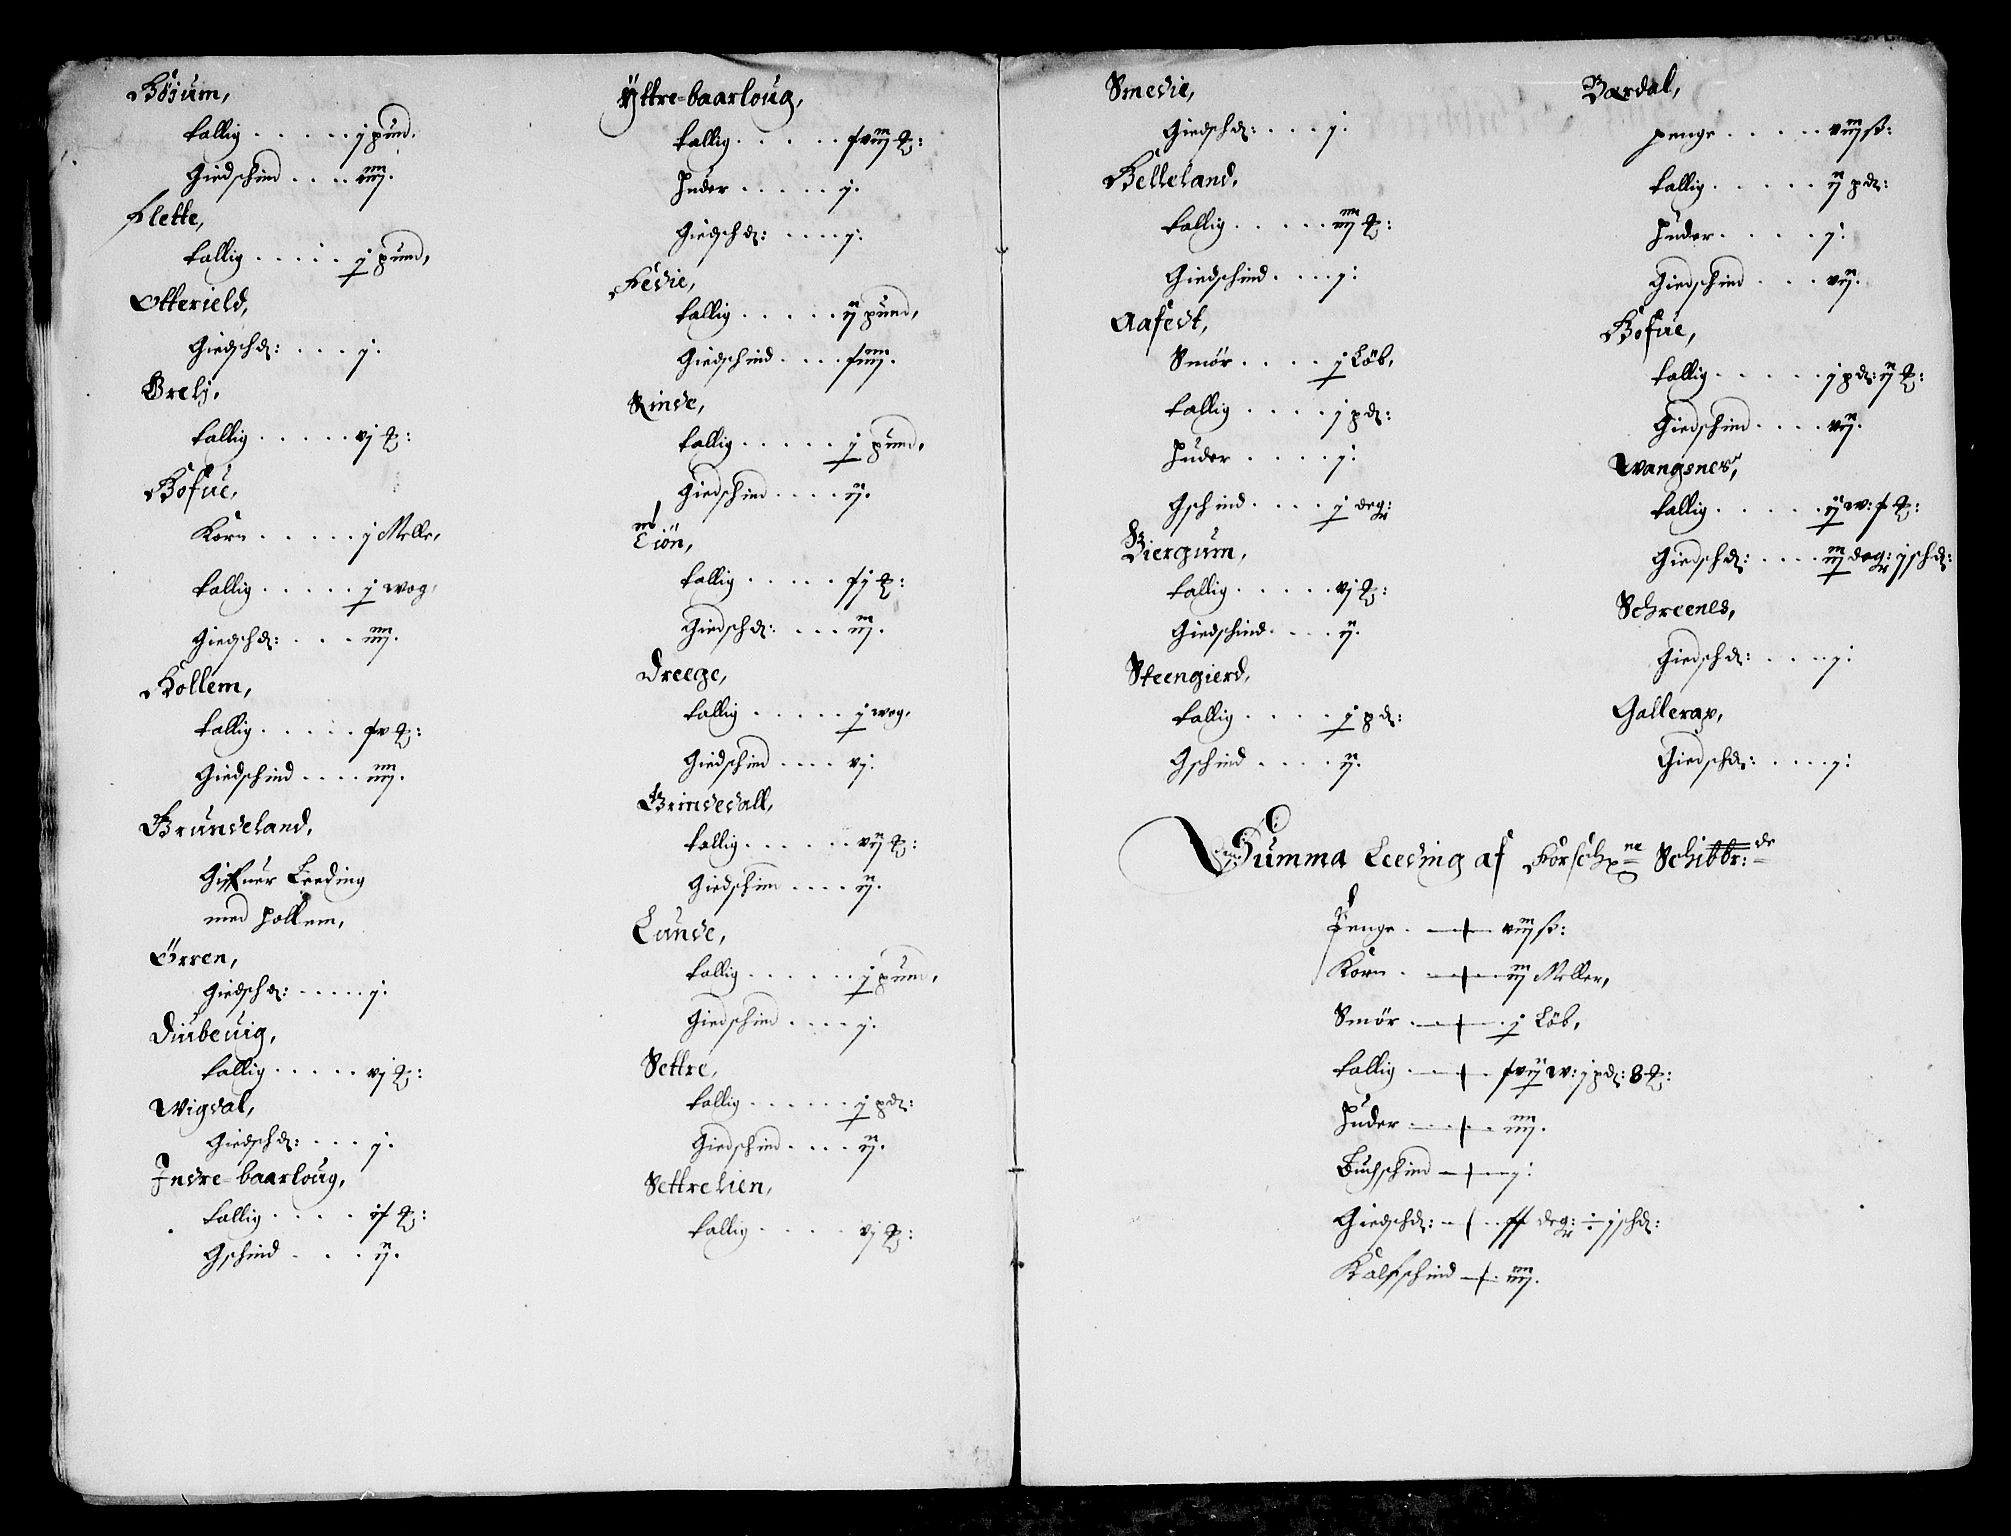 Bøium,
Tallig ..... j pund.
Giedschind .... iiij.
Flette,
Tallig ..... j pund,
Otterield,
Giedschd: ... j.
Brely,
Tallig ..... vj
Bofue,
Korn ..... j Melle,
Tallig ..... j wog,
Giedschd: ... iiij.
Kollem,
Tallig ..... xv
Giedschind .... iiij.
Brundeland,
Leeding
med Hollem,
Örren,
Giedschd: ..... j.
Diubeuig,
Tallig ..... vj
Wigdal,
Giedschd: ... j.
Indre-baarloug,
Tallig .... ix
Gschind ... ij.
Yttre-baarloug,
Tallig ..... xviij
Huder ..... j.
Giedschd: .... j.
Fedie,
Tallig ..... ij pund,
Giedschind .... xiiij.
Rinde,
Tallig ..... j pund,
Giedschind .... ij.
Eiön,
Tallig ..... xj
Giedschd: ... iij.
Dreege,
Tallig ..... j wog,
Giedschind .... vj.
Grindedall,
Tallig ...... vij
Giedschind .... ij.
Lunde,
Tallig ...... j pund,
Giedschind .... j.
Settre,
Tallig ...... j pd:
Giedschind .... ij.
Settrelien,
Tallig ..... vj
Smedie,
Giedschd: ... j.
Helleland,
Tallig ..... iiij
Giedschind .... j.
Aafedt,
Smör .... j Löb,
Tallig .... j pd:
Huder .... j.
Gschind .... j degr:
Biergum,
Tallig ..... vj
Giedschind .... ij.
Steengierd,
Tallig .... j pd:
Gschind .... ij.
Bardal,
penge ..... viij ß:
Tallig ..... ij pd:
Huder .... j.
Giedschind ... vij.
Hofue,
Tallig ..... j pd: ij
Giedschind .... vij.
Wangsnes,
Tallig ..... ij w: x
Giedschd: .... iij degr: j schd:
Schreenes,
Giedschd: .... j.
Gallerax,
Giedschd: .... j.
Summa Leeding af Schibbr:de
Penge . viij ß:
Korn . iij Meller,
Smör . j Löb,
Tallig . xvij w: j pd: 8
Huder . iiij.
Buchschind j.
Giedschd: xx degr: ÷ j schd:
Kalfschind iiij.